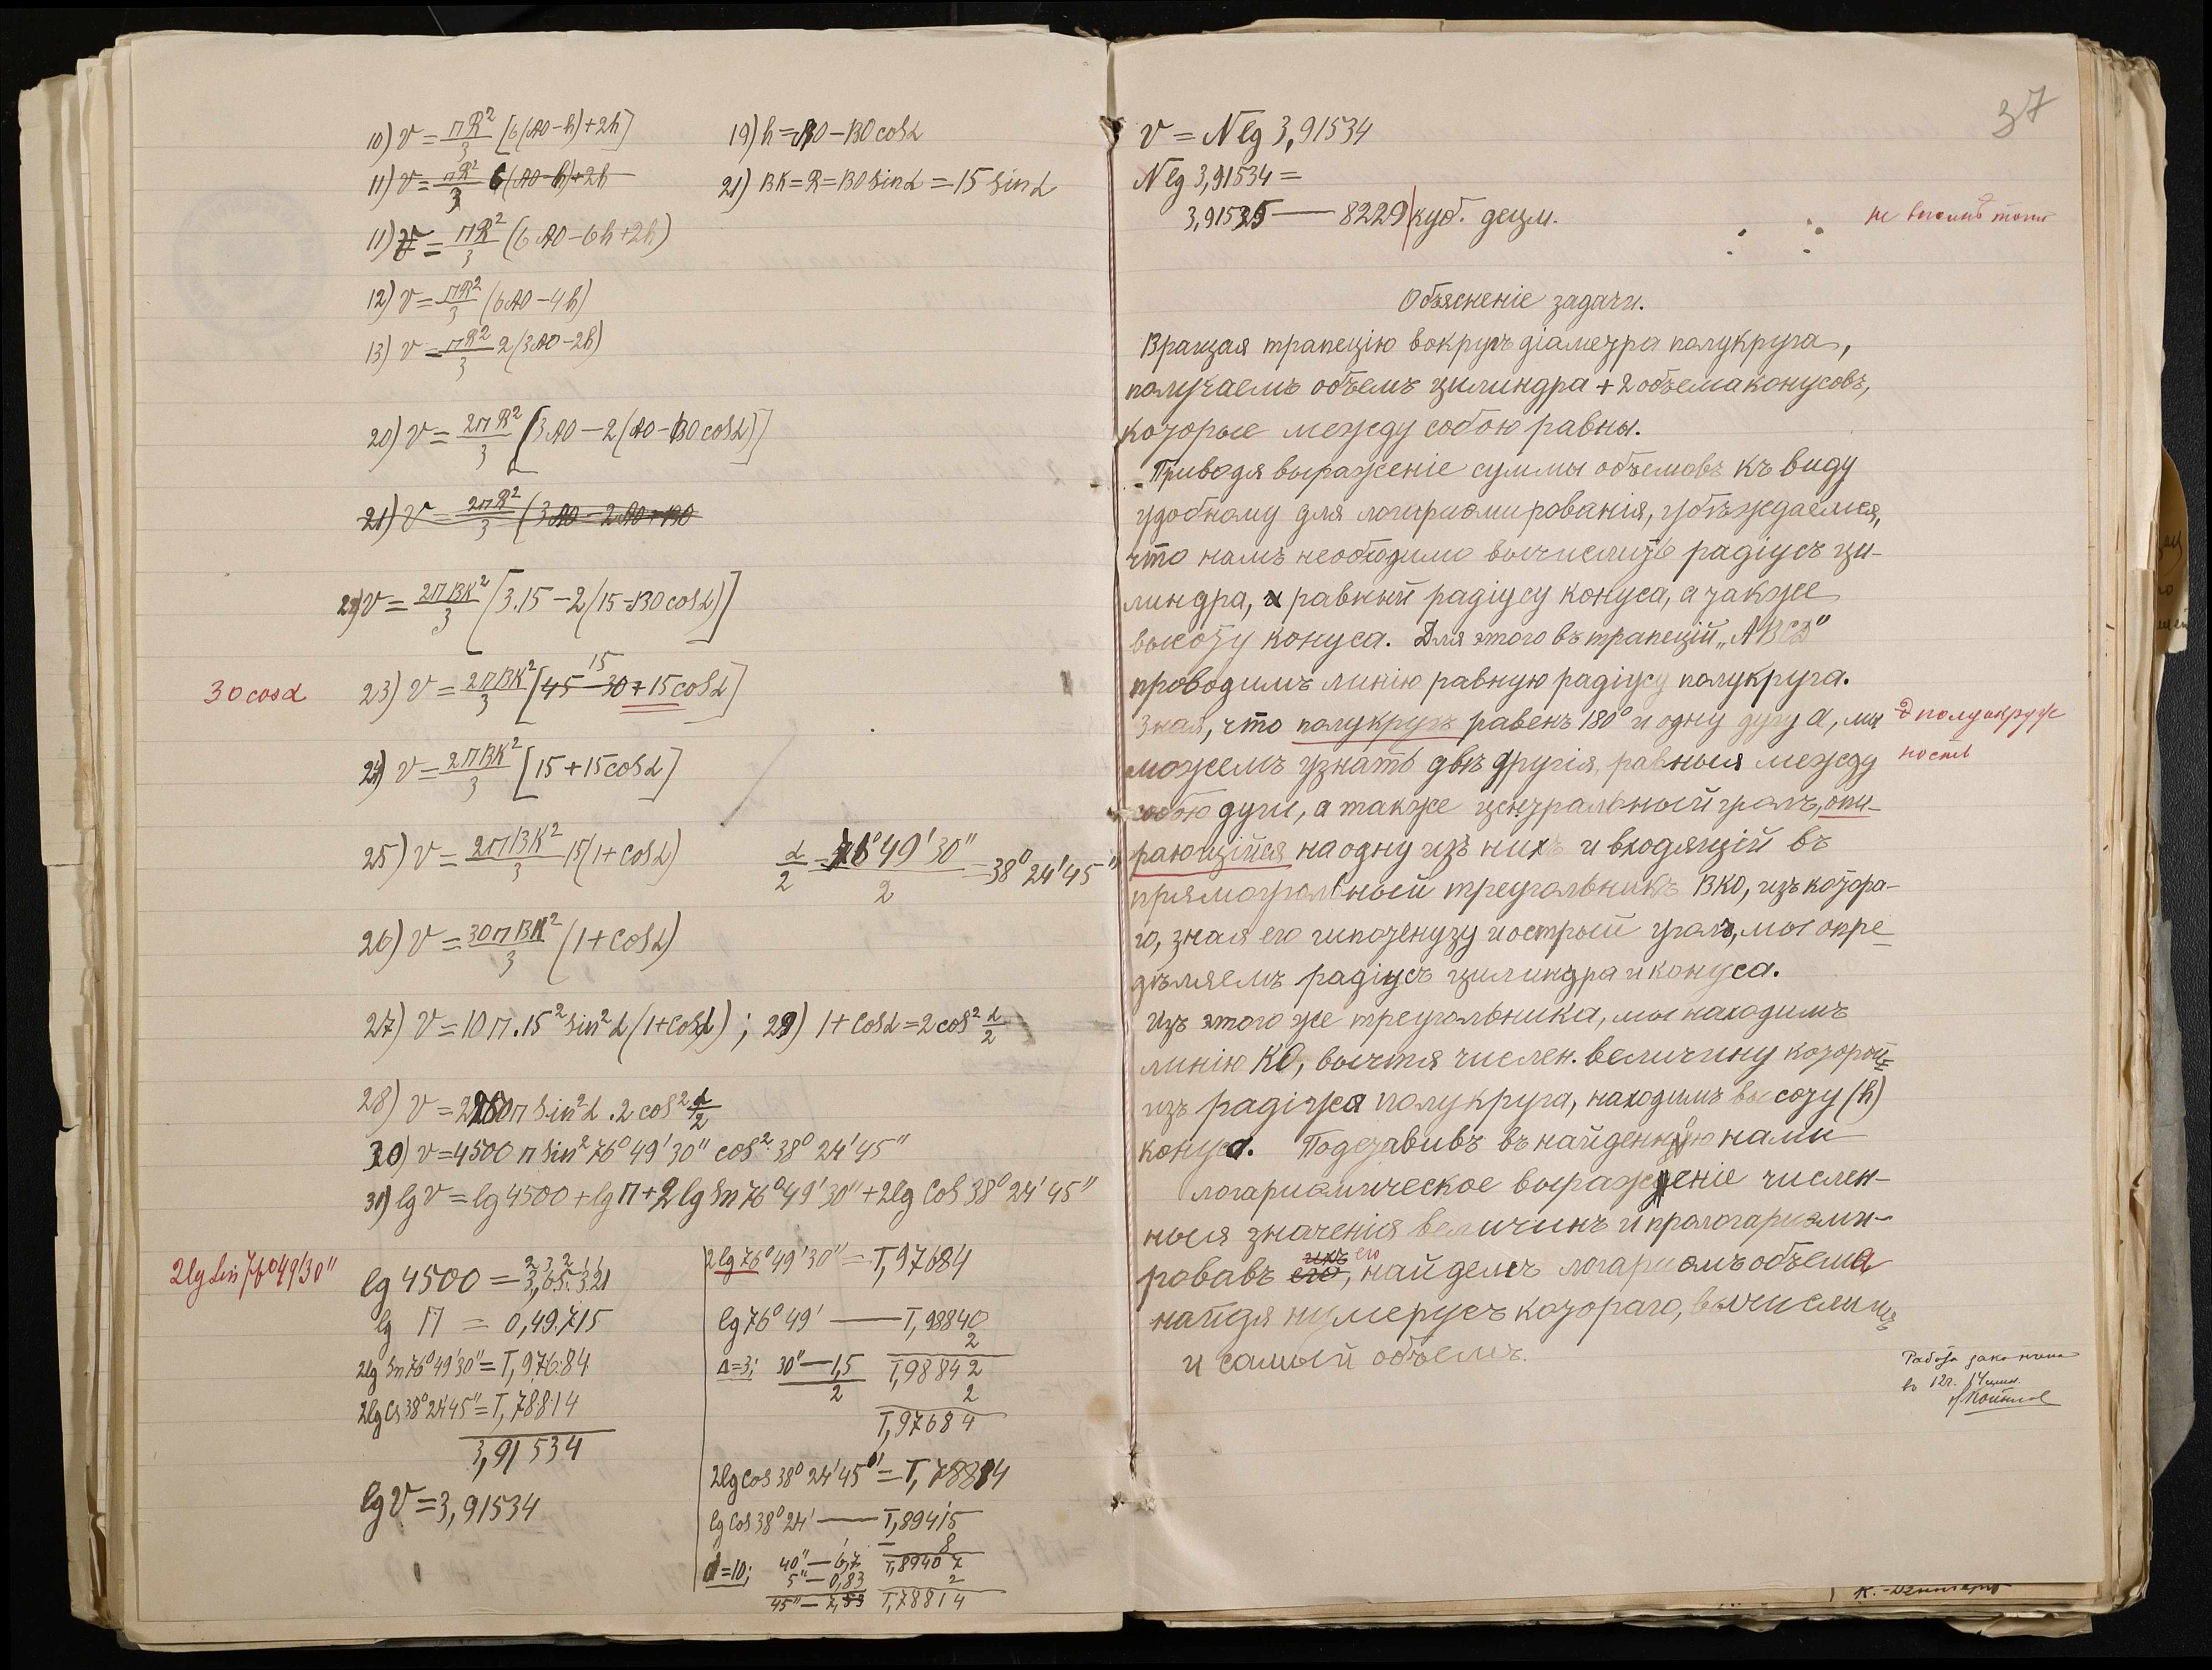 10) v = пR²/3 [6(AO-h)+2h]
11) v = пR²/3 6(AO-h)+2h
11) v = пR²/3 (6AO-6h+2h)
12) v = пR²/3 (6AO-4h)
13) v = пR²/3 2(3AO-2h)
20) v = 2пR²/3 [3AO-2(AO-BO cosα)]
21) v = 2пR²/3 (3AO-2AO+BO
22) v = 2пBK²/3 [3.15-2(15-BO cosα)]
15
30 cosα
23) v = 2пBK²/3 [45-30+15cosα]
24) v = 2пBK²/3 [15+15cosα]
25) v = 2пBK²/3 15(1+cosα)
26) v = 30пBK²/3 (1+cosα)
19) h = AO-BO cosα
21) BK=R=BO sinα=15 sinα
α/2 = 76°49'30"/2 = 38°24'45"
27) v = 10п.15² sin²α(1+cosα); 29) 1+cosα=2cos² α/2
28) v = 2250п sin²α.2cos² α/2
30) v=4500 п sin² 76°49'30" cos² 38°24'45"
31) lg v = lg 4500 + lg п + 2 lg Sin 76°49'30" + 2lg cos 38°24'45"
2lg Sin 76°49'30"
lg 4500 = 3,65.321
lg п = 0,49.715
2lg Sin 76°49'30" = 1,976.84
2lg Cs 38°24'45" = 1,78814
3,91534
lg v = 3,91534
2lg 76°49'30" = 1,97684
lg 76°49' — 1,98840
2
Δ=3; 30" — 1,5 1,98842
2 2
1,97684
2lg cos 38°24'45" = 1,78814
lg cos 38°24' — 1,89415
8
d=10; 40" — 6,7 1,89407
5" — 0,83 2
45" — 7,53 1,78814
37
v = N lg 3,91534
N lg 3,91534 =
3,91535 — 8229 куб. децм.
Объясненіе задачи.
Вращая трапецію вокругъ діаметра полукруга,
получаемъ объемъ цилиндра + 2 объема конусовъ,
которые между собою равны.
Приводя выраженіе суммы объемовъ къ виду
удобному для логариѳмированія, убѣждаемся,
что намъ необходимо вычислить радіусъ ци-
линдра, и равный радіусу конуса, а также
высоту конуса. Для этого въ трапеціи „ABCD"
проводимъ линію равную радіусу полукруга.
Зная, что полукругъ равенъ 180° и одну дугу α, мы
полуокруж
ность
можемъ узнать двѣ другія, равныя между
собою дуги, а также центральный уголъ, опи-
рающійся на одну изъ нихъ и входящій въ
прямоугольный треугольникъ BKO, изъ котора-
го, зная его гипотенузу и острый уголъ, мы опре-
дѣляемъ радіусъ цилиндра и конуса.
Изъ этого же треугольника, мы находимъ
линію KO, вычтя числен. величину которой
изъ радіуса полукруга, находимъ высоту (h)
конуса. Подставивъ въ найденную нами
логариѳмическое выраженіе числен-
ныя значенія величинъ и прологариѳми-
ихъ его
ровавъ его, найдемъ логариѳмъ объема
найдя нумерусъ котораго, вычислимъ
и самый объемъ.
Работа закончена
въ 12 ч. 14 мин.